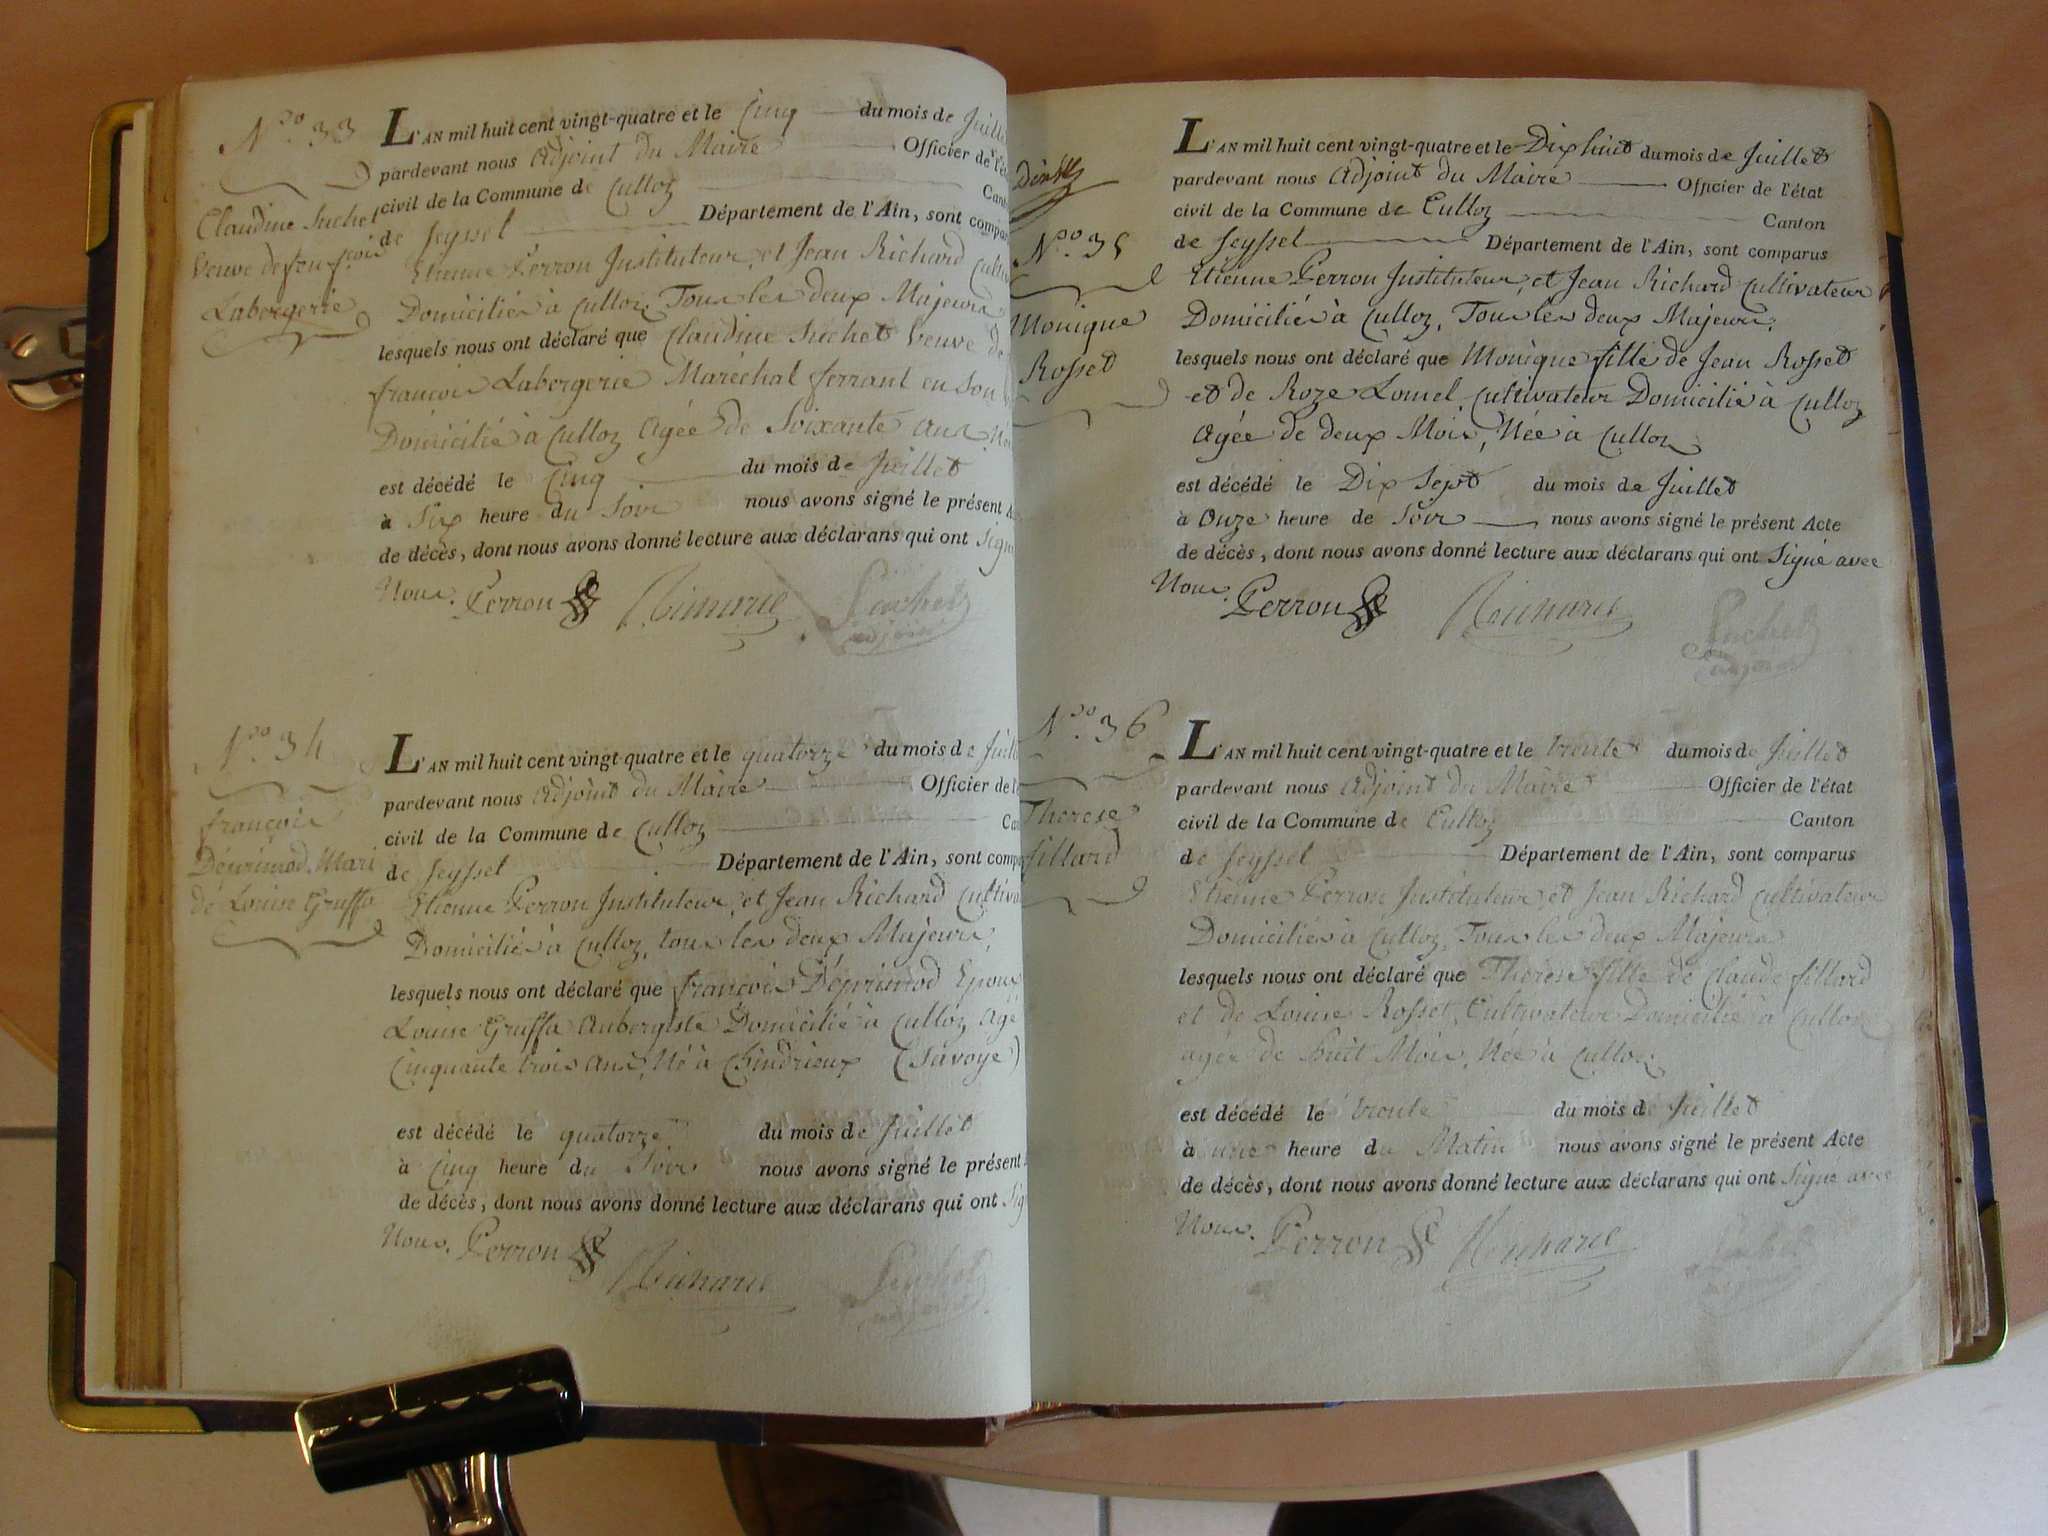 N.º 33
Claudine Suchet
Veuve de feu fçois
Labergerie
L'AN mil huit cent vingt-quatre et le Cinq du mois de Juill
pardevant nous Adjoint du Maire Officier de l'é
civil de la Commune de Culloz Cant
de Seyssel Département de l'Ain, sont compar
Etienne Perron Instituteur, et Jean Richard Cultiv
Domiciliés à Culloz, Tous les deux Majeurs
lesquels nous ont déclaré que Claudine Suchet Veuve de
françois Labergerie Maréchal ferrant en son
Domicilié à Culloz Agée de Soixante ans Né
est décédé le Cinq du mois de Juillet
à Six heure du Soir nous avons signé le présent A
de décès, dont nous avons donné lecture aux déclarans qui ont Sign
Nous. Perron Richard Suchet
adjoint
N.º 34
françois
Déprimod, Mari
de Louise Gruffa
L'AN mil huit cent vingt-quatre et le quatorze du mois de Juill
pardevant nous Adjoint du Maire Officier de l'é
civil de la Commune de Culloz Can
de Seyssel Département de l'Ain, sont compa
Etienne Perron Instituteur, et Jean Richard Cultiva
Domiciliés à Culloz, tous les deux Majeurs,
lesquels nous ont déclaré que françois Déprimod Epoux
Louise Gruffa Aubergiste Domicilié à Culloz Agé
Cinquante trois ans, Né à Chindrieux (Savoye)
est décédé le quatorze du mois de Juillet
à Cinq heure du Soir nous avons signé le présent A
de décès, dont nous avons donné lecture aux déclarans qui ont Sig
Nous. Perron Richard Suchet
adjoint
N.º 35
Monique
Rosset
L'AN mil huit cent vingt-quatre et le Dix huit du mois de Juillet
pardevant nous Adjoint du Maire Officier de l'état
civil de la Commune de Culloz Canton
de Seyssel Département de l'Ain, sont comparus
Etienne Perron Instituteur, et Jean Richard Cultivateur
Domiciliés à Culloz, Tous les deux Majeurs,
lesquels nous ont déclaré que Monique fille de Jean Rosset
et de Roze Lomel Cultivateur Domicilié à Culloz
Agée de deux Mois, Née à Culloz
est décédé le Dix Sept du mois de Juillet
à Onze heure de Soir nous avons signé le présent Acte
de décès, dont nous avons donné lecture aux déclarans qui ont Signé avec
Nous. Perron Richard Suchet
adjoint
N.º 36
Therese
fillard
L'AN mil huit cent vingt-quatre et le trente du mois de Juillet
pardevant nous Adjoint du Maire Officier de l'état
civil de la Commune de Culloz Canton
de Seyssel Département de l'Ain, sont comparus
Etienne Perron Instituteur, et Jean Richard Cultivateur
Domiciliés à Culloz, Tous les deux Majeurs
lesquels nous ont déclaré que Thérèse fille de Claude fillard
et de Louise Rosset, Cultivateur Domicilié à Culloz
agée de huit Mois, Née à Culloz
est décédé le trente du mois de Juillet
à une heure du Matin nous avons signé le présent Acte
de décès, dont nous avons donné lecture aux déclarans qui ont Signé avec
Nous. Perron Richard Suchet
adjoint